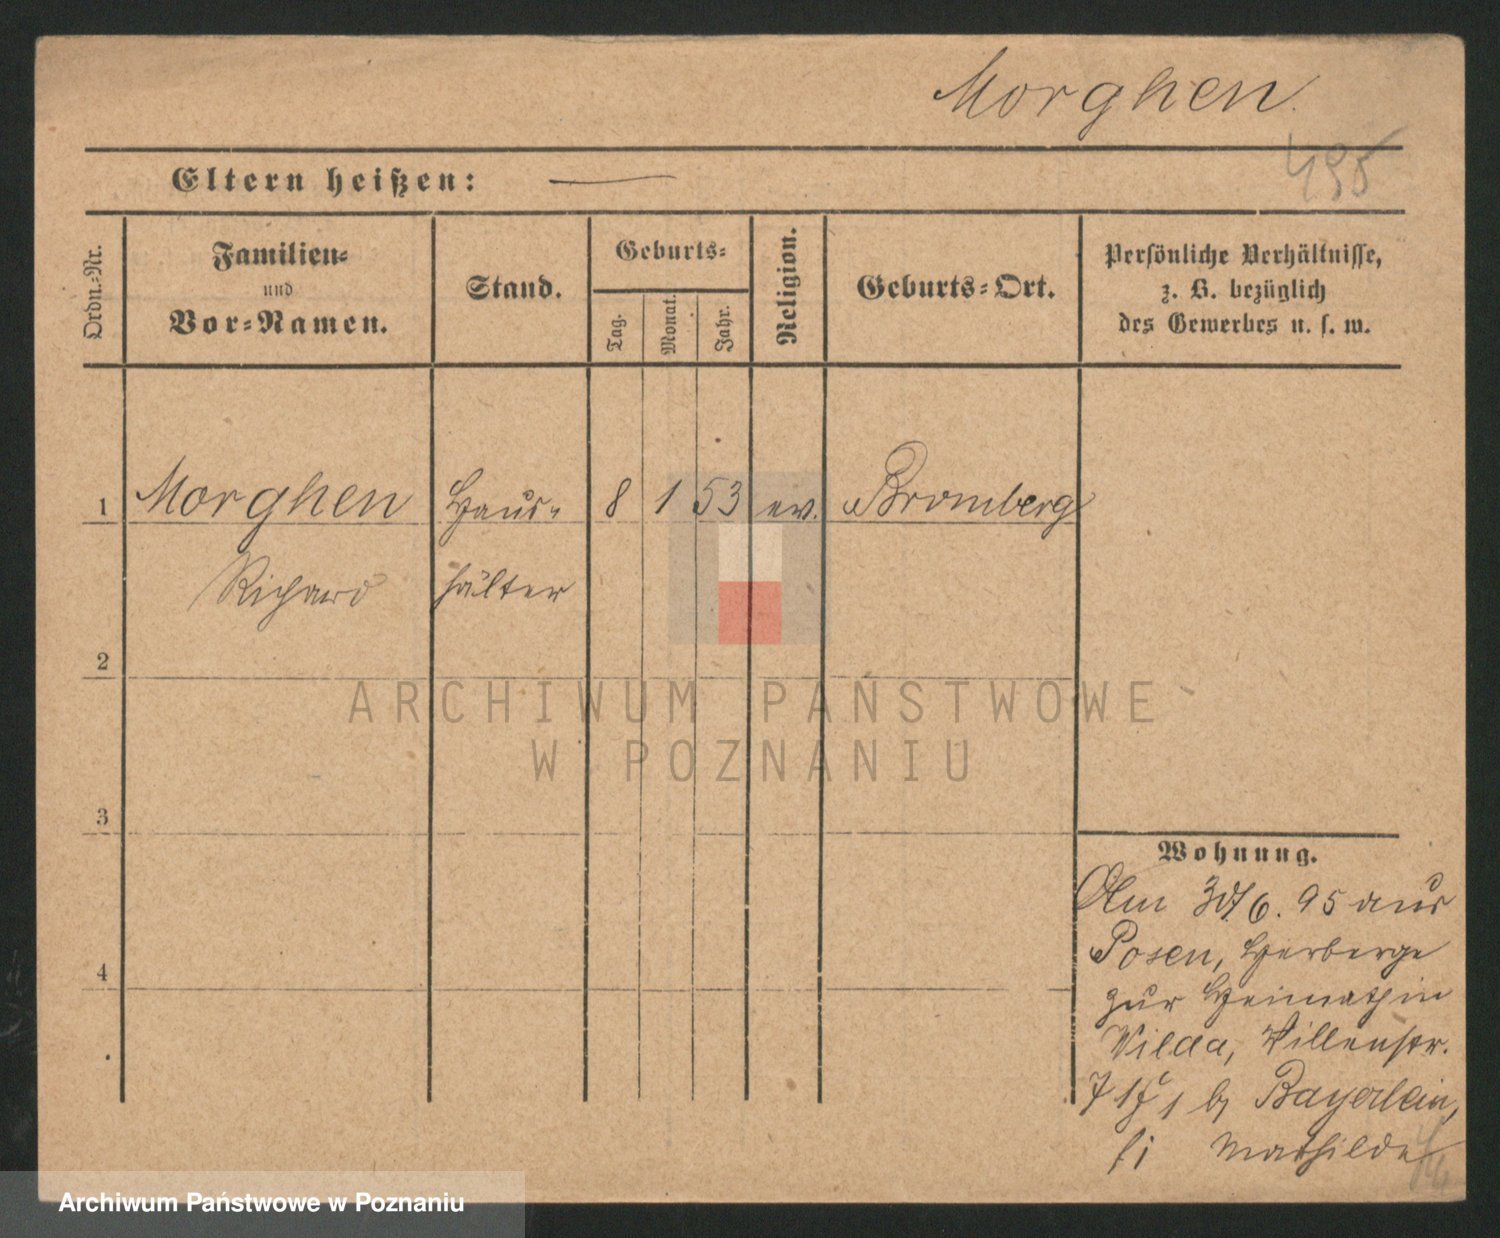 Morghen.
495
Eltern heißen: —
Ordn.-Nr.
Familien-
und
Vor-Namen.
Stand.
Geburts-
Tag.
Monat.
Jahr.
Religion.
Geburts-Ort.
Persönliche Verhältnisse,
z. B. bezüglich
des Gewerbes u. s. w.
1 Morghen Haus- 8 1 53 ev. Bromberg
Richard hälter
2
3
4
Wohnung.
Am 30/6. 95 aus
Posen, Herberge
zur Heimath in
Wilda, Villenstr.
b/ Bayerlein,
Mathilde
ARCHIWUM PAŃSTWOWE
W POZNANIU
Archiwum Państwowe w Poznaniu